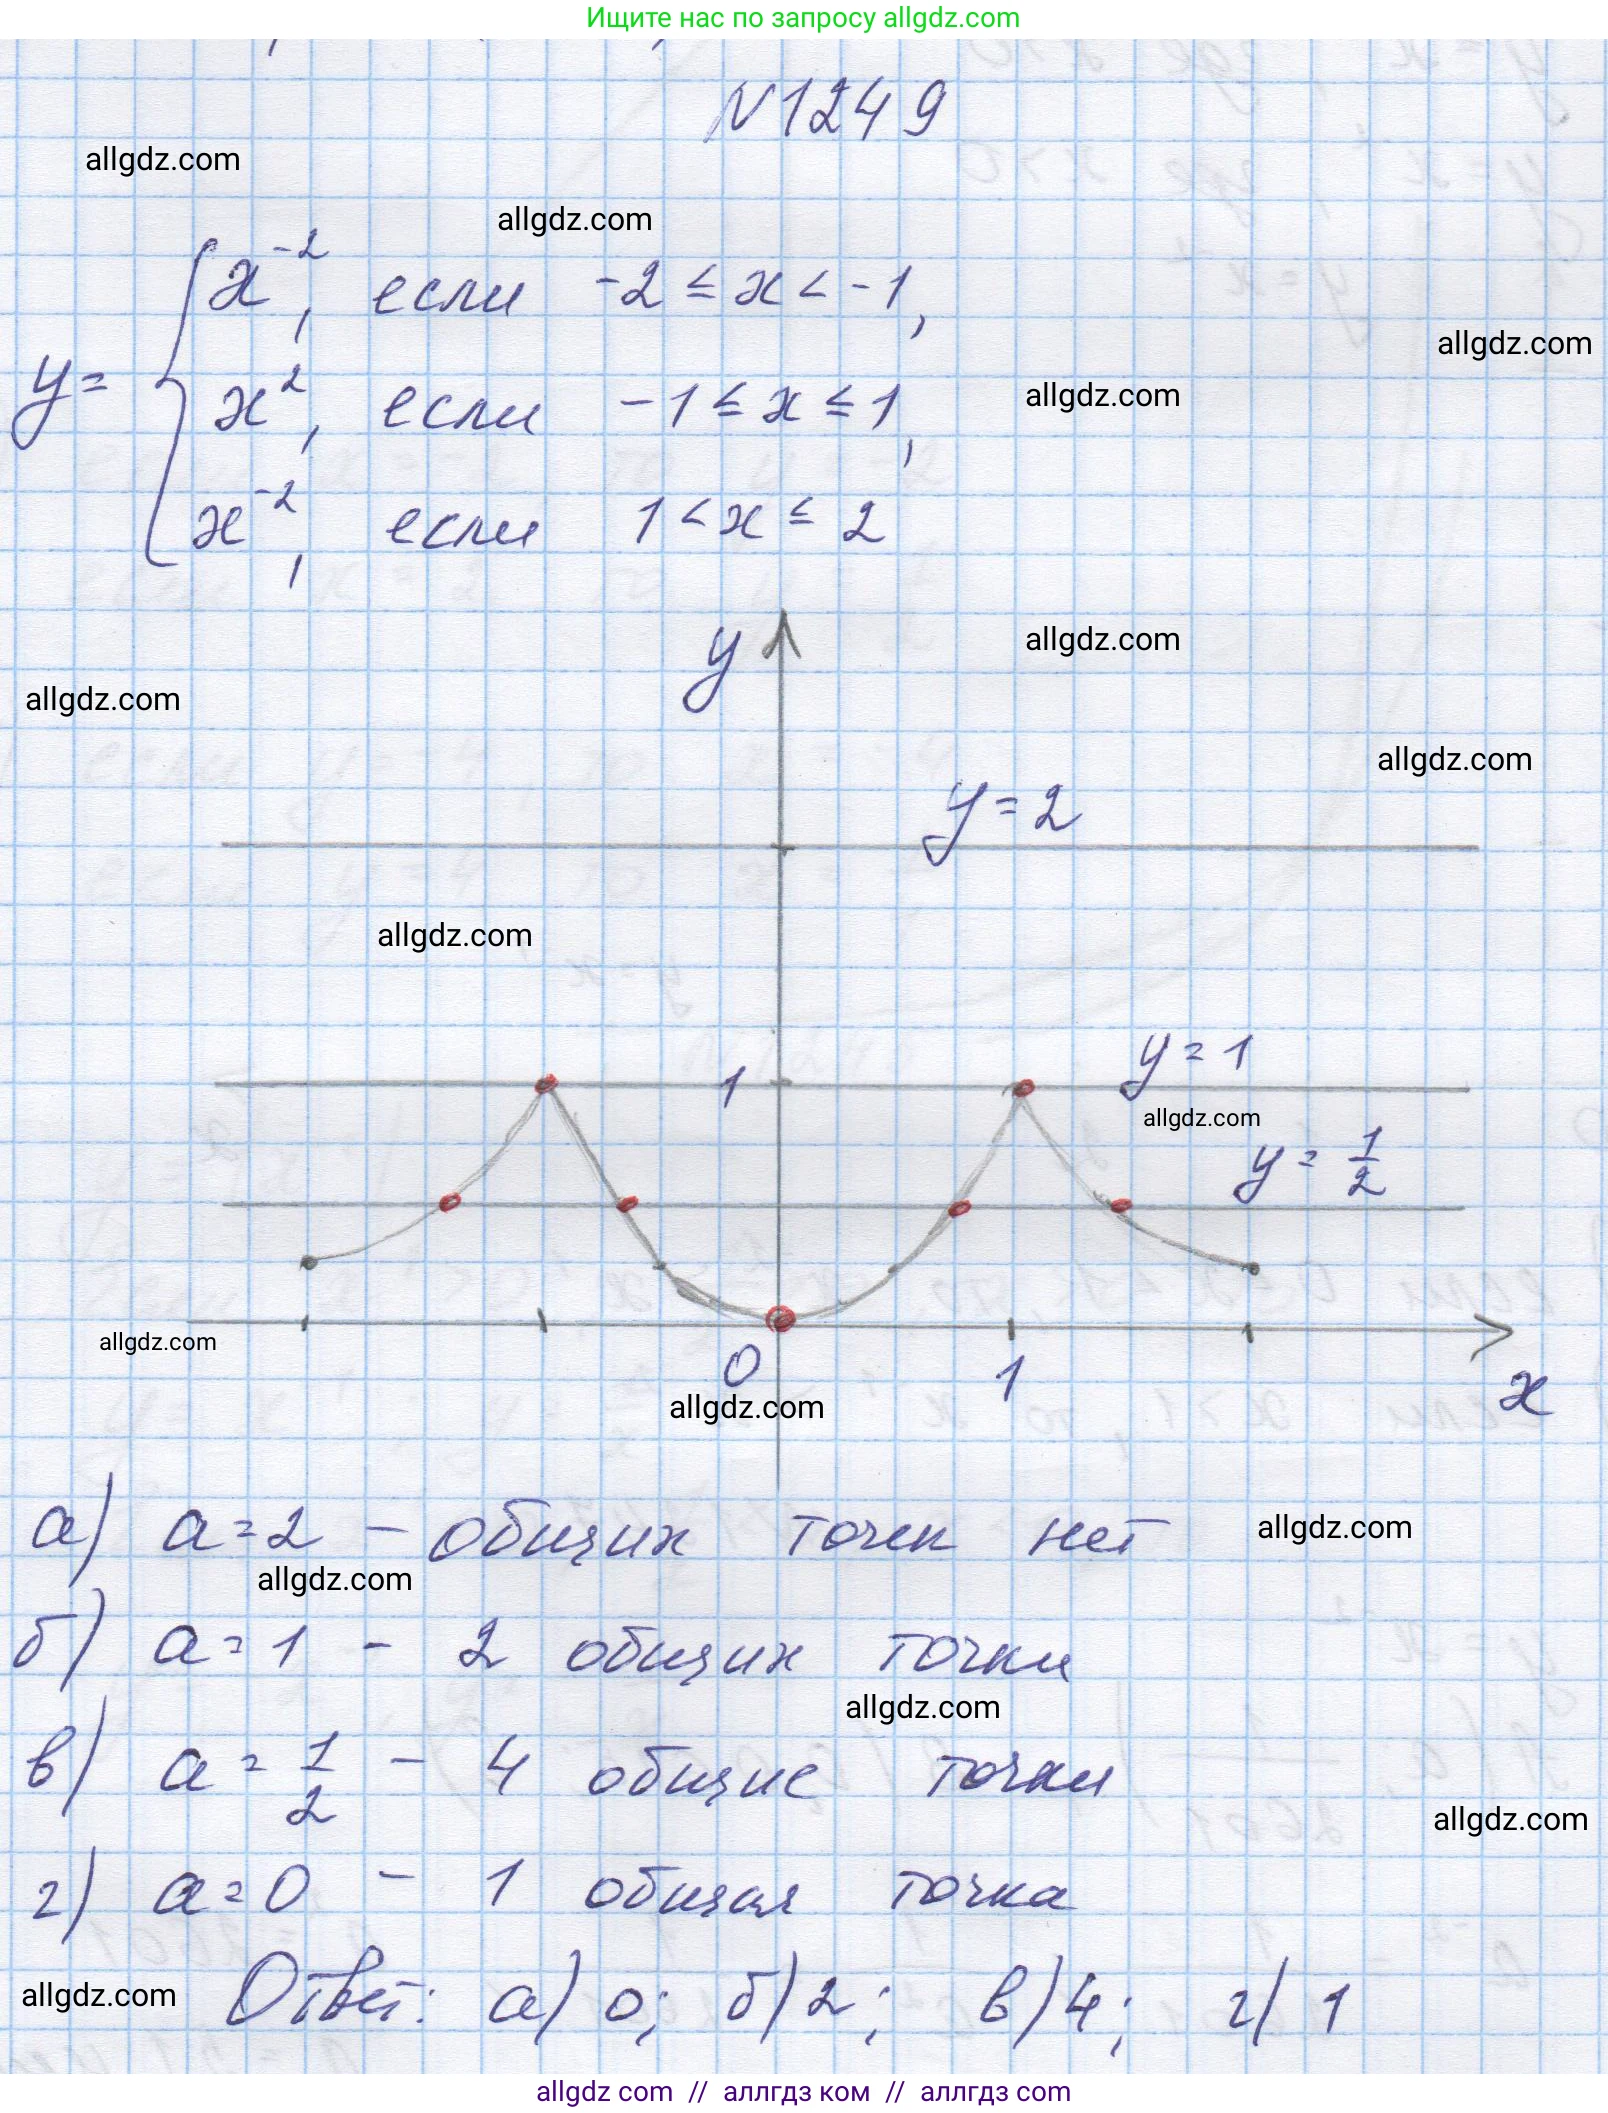 Ищите нас по запросу allgdz.com
N1249
allgdz.com
allgdz.com
y = { x⁻², если -2 ≤ x < -1,
allgdz.com
x², если -1 ≤ x ≤ 1,
allgdz.com
x⁻², если 1 < x ≤ 2
y
allgdz.com
allgdz.com
allgdz.com
y = 2
allgdz.com
1
y = 1
allgdz.com
y = 1/2
allgdz.com
0
1
x
allgdz.com
а) a = 2 – общих точек нет
allgdz.com
allgdz.com
б) a = 1 – 2 общих точки
allgdz.com
в) a = 1/2 – 4 общие точки
allgdz.com
г) a = 0 – 1 общая точка
allgdz.com
Ответ: а) 0; б) 2; в) 4; г) 1
allgdz com // аллгдз ком // аллгдз com